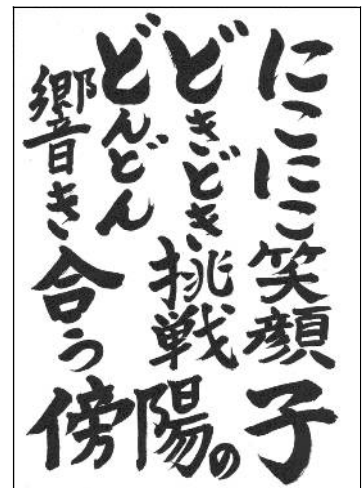 にこにこ笑顔
どきどき挑戦
どんどん
響き合う
傍陽の子